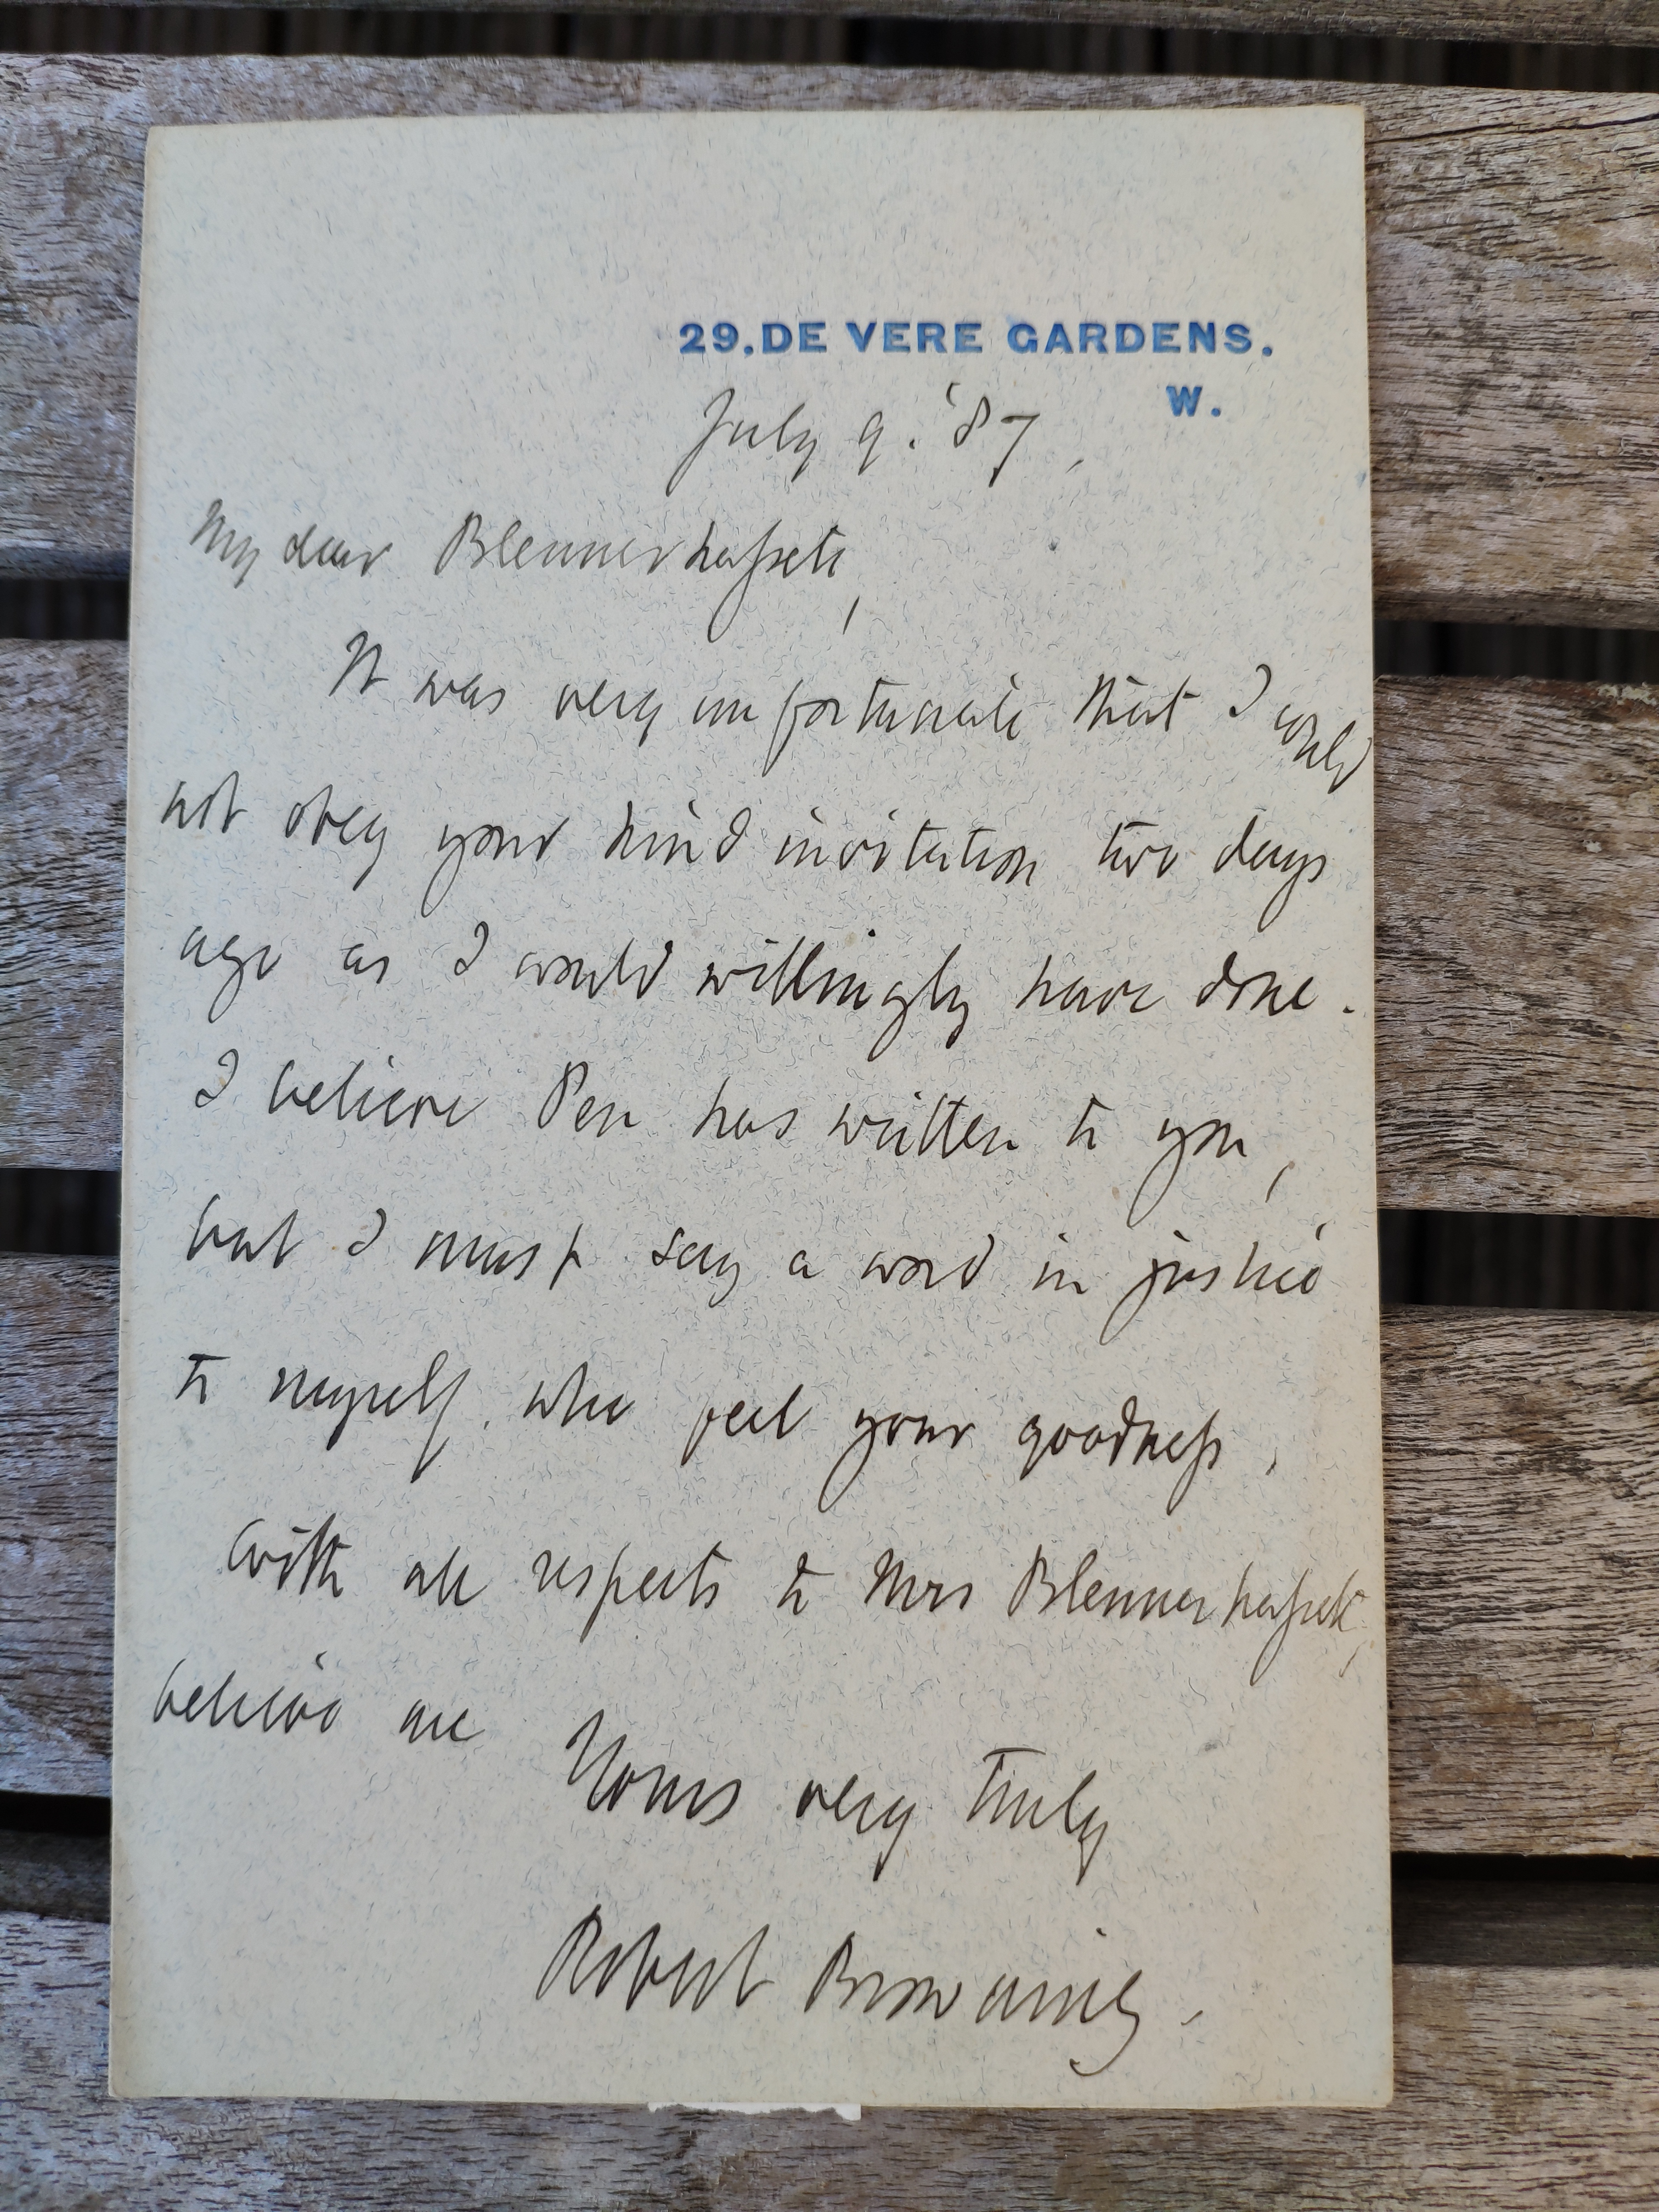 29.DE VERE GARDENS.
W.
July 9. '87.
My dear Blennerhassett,
It was very unfortunate that I could
not obey your kind invitation two days
ago as I would willingly have done.
I believe Pen has written to you,
but I must say a word in justice
to myself, who feel your goodness.
With all respects to Mrs Blennerhassett,
believe me
Yours very truly
Robert Browning.